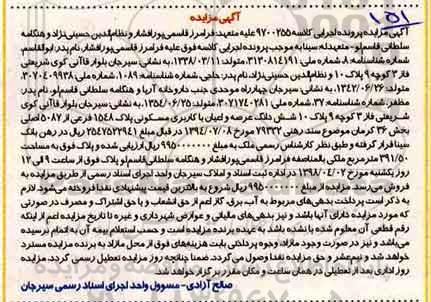 ۱۵۱
آگهی مزایده
آگهی مزایده پرونده اجرایی کلاسه ۹۷۰۰۲۵۵ علیه متعهد: فرامرز قاسمی پورافشار و نظام الدین حسینی نژاد و هنگامه
سلطانی قاسم لو- متعهدله سینا به موجب پرونده اجرایی کلاسه فوق علیه فرامرز قاسمی پورافشار، نام پدر: ابوالقاسم،
شماره شناسنامه: ۸، شماره ملی: ۳۱۳۰۸۱۴۱۹۱، متولد: ۱۳۳۸/۰۳/۱۱، به نشانی: سیرجان بلوار قاآنی کوی شریعتی
فاز ۳ کوچه ۹ پلاک ۱۰ و نظام الدین حسینی نژاد، نام پدر: حاجی، شماره شناسنامه: ۱۰۸۹، شماره ملی: ۳۰۷۰۴۰۹۹۳۸،
متولد: ۱۳۴۲/۰۶/۲۶، به نشانی: سیرجان چهارراه موحدی جنب داروخانه آریا و هنگامه سلطانی قاسم لو، نام پدر:
مظفر، شماره شناسنامه: ۳۷، شماره ملی: ۳۰۷۱۷۴۰۲۸۱، متولد: ۱۳۵۴/۰۶/۲۵، به نشانی: سیرجان بلوار قاآنی کوی
شریعتی فاز ۳ کوچه ۹ پلاک ۱۰ شش دانگ عرصه و اعیان با کاربری مسکونی پلاک ۱۵۴۸ فرعی از ۵۰۸۷ اصلی
بخش ۳۶ کرمان موضوع سند رهنی ۷۹۳۳۲ مورخ ۱۳۹۴/۰۷/۰۸ در قبال مبلغ ۲۵۴۷۵۲۲۹۴۱ ریال در رهن بانک
سینا قرار گرفته و طبق نظر کارشناس رسمی ملک به مبلغ ۹۹۵۰۰۰۰۰۰۰ ریال ارزیابی شده و پلاک فوق به مساحت
۳۹۱/۵۰ مترمربع ملکی بالمناصفه فرامرز قاسمی پورافشار و هنگامه سلطانی قاسم لو پلاک فوق از ساعت ۹ الی ۱۲
روز یکشنبه مورخ ۱۳۹۸/۰۴/۰۲ در اداره ثبت اسناد و املاک سیرجان واحد اجرای اسناد رسمی از طریق مزایده به
فروش می رسد. مزایده از مبلغ ۹۹۵۰۰۰۰۰۰۰ ریال شروع به بالاترین قیمت پیشنهادی نقدا فروخته می شود. لازم
به ذکر است پرداخت بدهی های مربوط به آب، برق، گاز اعم از حق انشعاب و یا حق اشتراک و مصرف در صورتی
که مورد مزایده دارای آنها باشد و نیز بدهی های مالیاتی و عوارض شهرداری و غیره تا تاریخ مزایده اعم از اینکه
رقم قطعی آن معلوم شده یا نشده باشد به عهده برنده مزایده است و حسب استعلام بیمه آن به اتمام نرسیده
می باشد و نیز در صورت وجود مازاد، وجوه پرداختی بابت هزینه های فوق از محل مازاد به برنده مزایده مسترد
خواهد شد و نیم عشر و حق مزایده نقدا وصول می گردد. ضمنا چنانچه روز مزایده تعطیل رسمی گردد، مزایده
روز اداری بعد از تعطیلی در همان ساعت و مکان مقرر برگزار خواهد شد.
صالح آزادی- مسوول واحد اجرای اسناد رسمی سیرجان